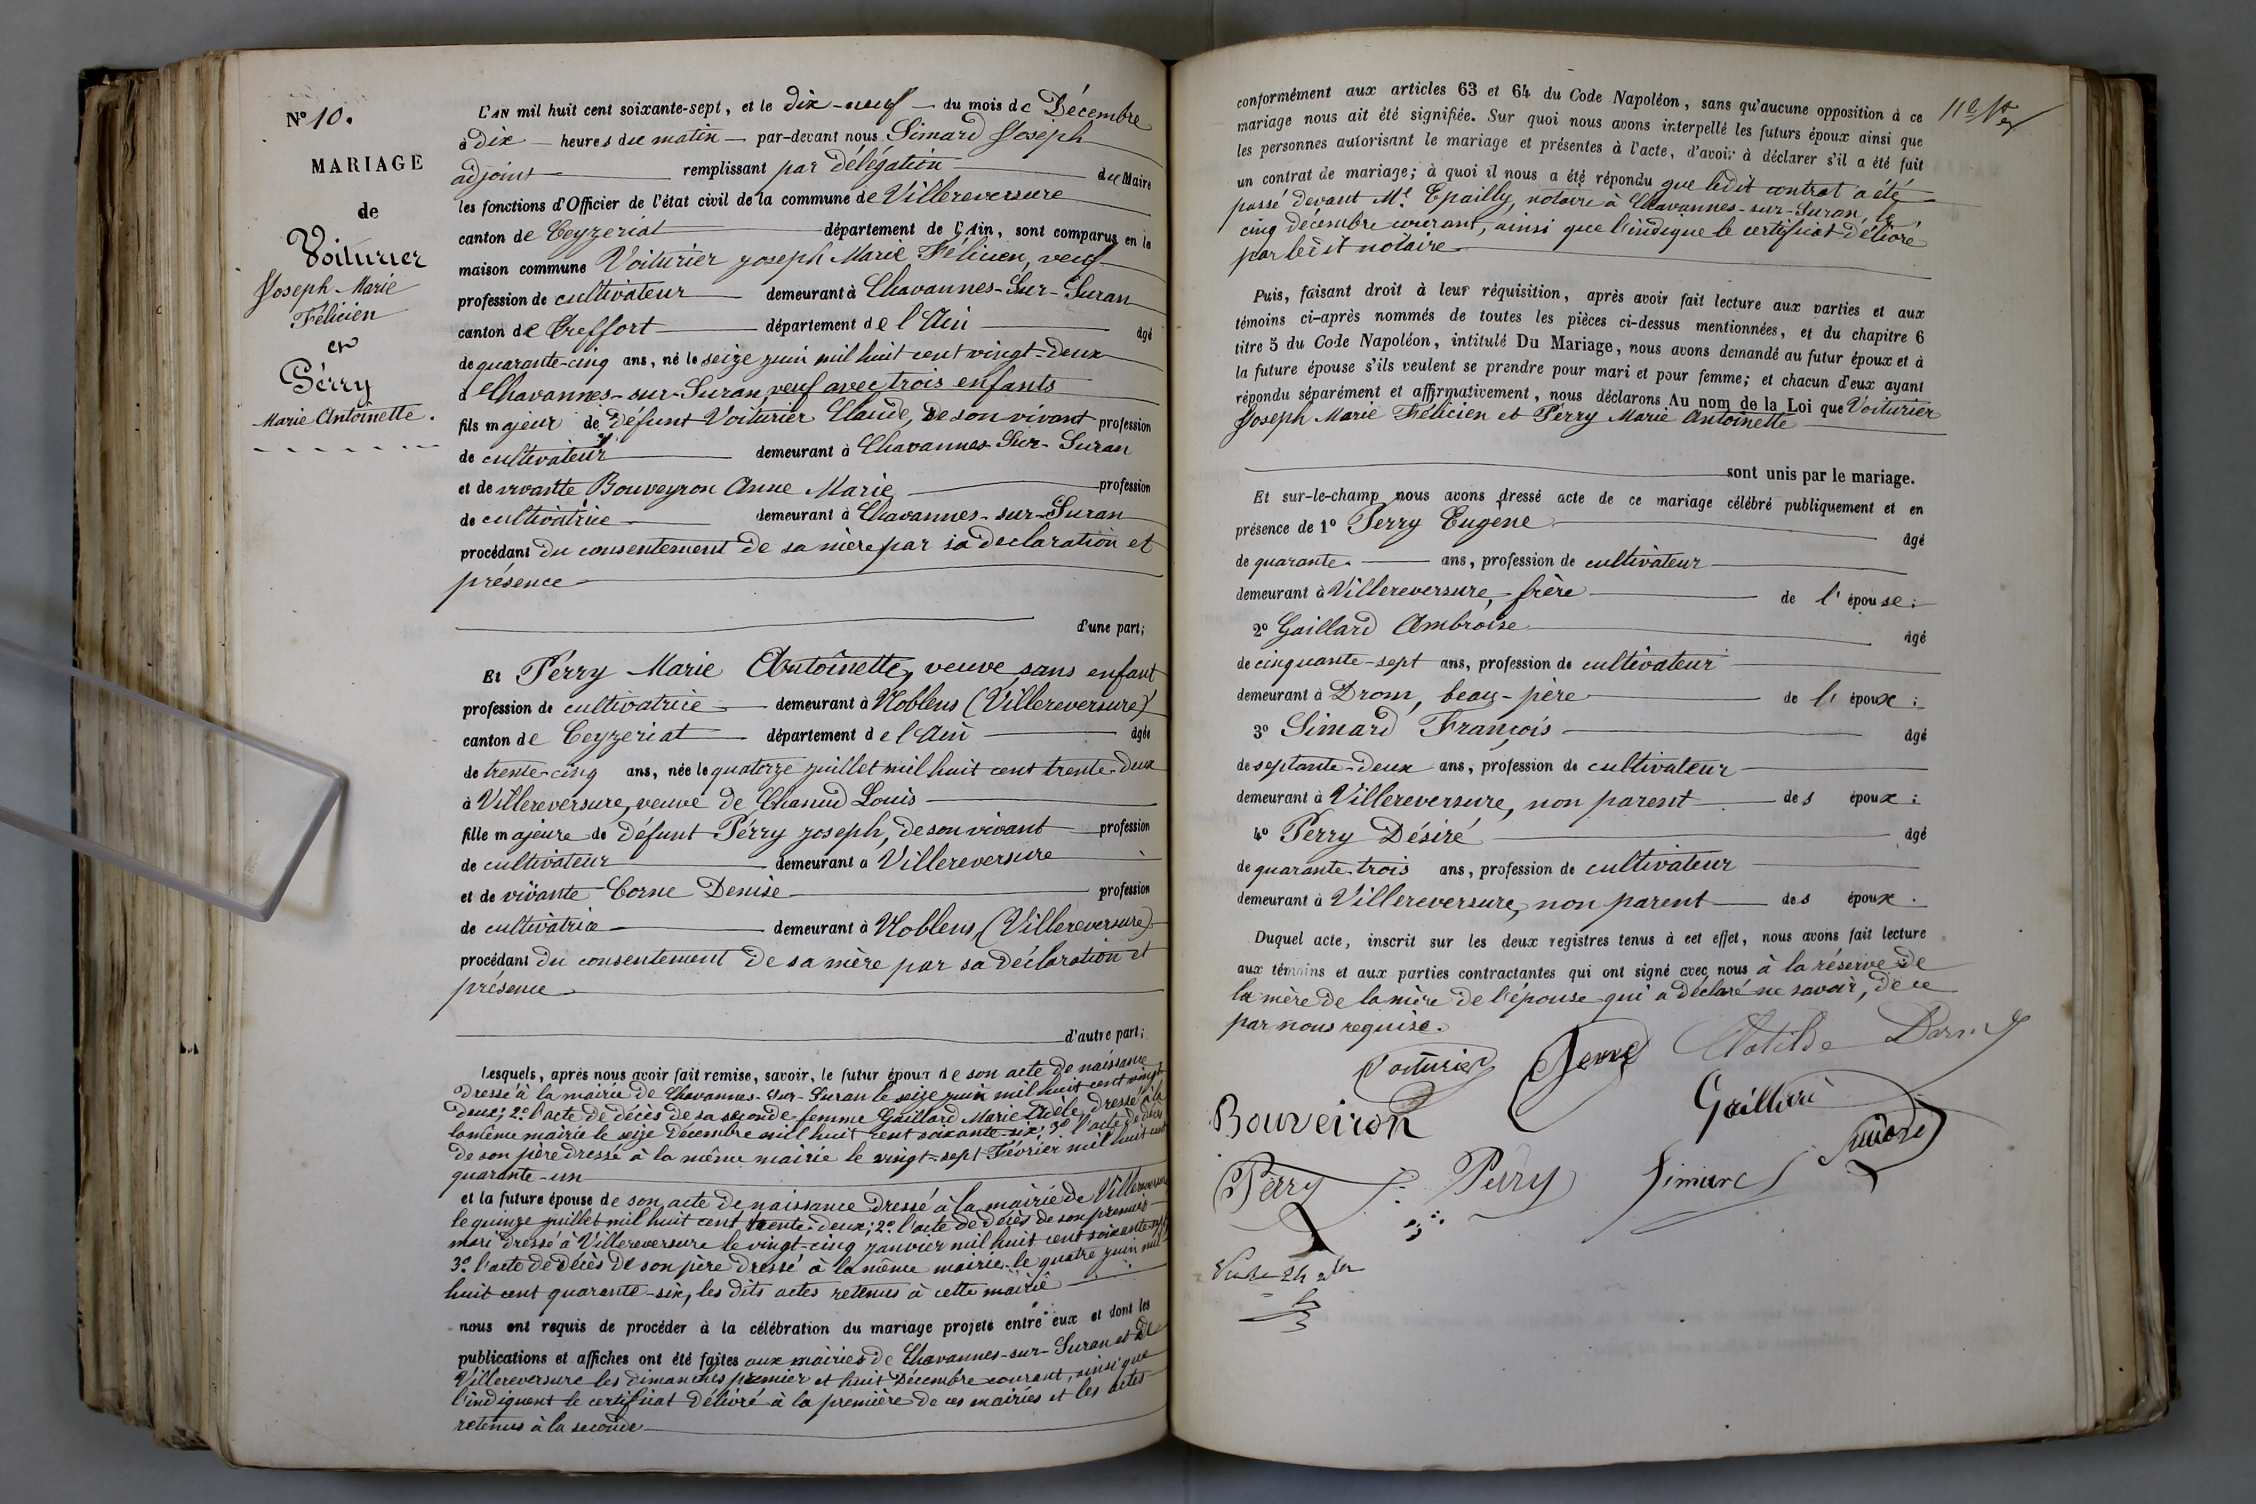 N° 10.
MARIAGE
de
Voiturier
Joseph-Marie
Félicien
et
Pérry
Marie Antoinette.
L'AN mil huit cent soixante-sept, et le dix-neuf du mois de Décembre
à dix heures du matin par-devant nous Simard Joseph
adjoint remplissant par délégation du Maire
les fonctions d'Officier de l'état civil de la commune de Villereversure
canton de Ceyzeriat département de l'Ain, sont comparus en la
maison commune Voiturier joseph Marie Félicien, veuf
profession de cultivateur demeurant à Chavannes-Sur-Suran
canton de Treffort département de l'Ain âgé
de quarante-cinq ans, né le seize juin mil huit cent vingt-deux
à Chavannes-sur-Suran, veuf avec trois enfants
fils majeur de défunt Voiturier Claude, de son vivant profession
de cultivateur demeurant à Chavannes-Sur-Suran
et de vivante Bouveyron Anne Marie profession
de cultivatrice demeurant à Chavannes-sur-Suran
procédant du consentement de sa mère par sa déclaration et
présence
d'une part;
Et Pérry Marie Antoinette, veuve sans enfant
profession de cultivatrice demeurant à Noblens (Villereversure)
canton de Ceyzeriat département de l'Ain âgée
de trente-cinq ans, née le quatorze juillet mil huit cent trente-deux
à Villereversure, veuve de Chanud Louis
fille majeure de défunt Pérry joseph, de son vivant profession
de cultivateur demeurant à Villereversure
et de vivante Corne Denise profession
de cultivatrice demeurant à Noblens (Villereversure)
procédant du consentement de sa mère par sa déclaration et
présence
d'autre part;
Lesquels, après nous avoir fait remise, savoir, le futur époux de son acte de naissance
dressé à la mairie de Chavannes-Sur-Suran le seize juin mil huit cent vingt-
deux; 2° l'acte de décès de sa seconde femme Gaillard Marie Adèle, dressé à la
la même mairie le seize Décembre mill huit cent soixante-six; 3° l'acte de décès
de son père dressé à la même mairie le vingt-sept Février mil huit cent
quarante-un
et la future épouse de son acte de naissance dressé à la mairie de Villereversure
le quinze juillet mil huit cent trente-deux; 2° l'acte de décès de son premier
mari dressé à Villereversure le vingt-cinq janvier mil huit cent soixante-
3° l'acte de décès de son père dressé à la même mairie le quatre juin mil
huit cent quarante-six, les dits actes retenus à cette mairie
nous ont requis de procéder à la célébration du mariage projeté entre eux et dont les
publications et affiches ont été faites aux mairies de Chavannes-sur-Suran et de
Villereversure les dimanches premier et huit Décembre courant, ainsi que
l'indiquent le certificat délivré à la première de ces mairies et les actes
retenus à la seconde
conformément aux articles 63 et 64 du Code Napoléon, sans qu'aucune opposition à ce
mariage nous ait été signifiée. Sur quoi nous avons interpellé les futurs époux ainsi que
les personnes autorisant le mariage et présentes à l'acte, d'avoir à déclarer s'il a été fait
un contrat de mariage; à quoi il nous a été répondu que ledit contrat a été
passé devant Me. Epailly, notaire à Chavannes-sur-Suran, le
cinq décembre courant, ainsi que l'indique le certificat délivré
par ledit notaire
Puis, faisant droit à leur réquisition, après avoir fait lecture aux parties et aux
témoins ci-après nommés de toutes les pièces ci-dessus mentionnées, et du chapitre 6
titre 5 du Code Napoléon, intitulé Du Mariage, nous avons demandé au futur époux et à
la future épouse s'ils veulent se prendre pour mari et pour femme; et chacun d'eux ayant
répondu séparément et affirmativement, nous déclarons Au nom de la Loi que Voiturier
Joseph Marie Félicien et Pérry Marie Antoinette
sont unis par le mariage.
Et sur-le-champ nous avons dressé acte de ce mariage célébré publiquement et en
présence de 1° Perry Eugène âgé
de quarante ans, profession de cultivateur
demeurant à Villereversure, frère de l'épouse;
2° Gaillard Ambroise âgé
de cinquante-sept ans, profession de cultivateur
demeurant à Drom, beau-père de l'époux;
3° Simard François âgé
de septante-deux ans, profession de cultivateur
demeurant à Villereversure, non parent des époux;
4° Perry Désiré âgé
de quarante-trois ans, profession de cultivateur
demeurant à Villereversure, non parent des époux.
Duquel acte, inscrit sur les deux registres tenus à cet effet, nous avons fait lecture
aux témoins et aux parties contractantes qui ont signé avec nous à la réserve de
la mère de la mère de l'épouse qui a déclaré ne savoir, de ce
par nous requise.
Voiturier
Clotilde
Bouveiron
Gaillard
Perry
Perry
Simard
Simard